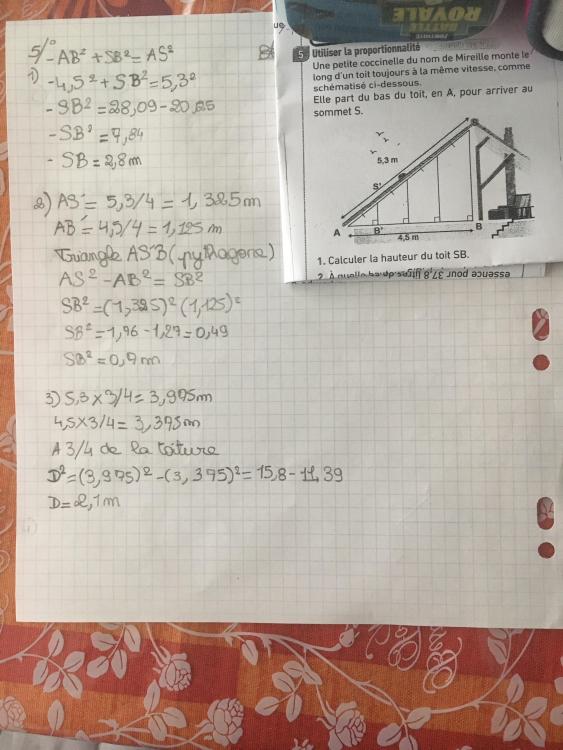 5/°
- AB² + SB² = AS²
1) - 4,5² + SB² = 5,3²
- SB² = 28,09 - 20,25
- SB² = 7,84
- SB = 2,8 m
2) AS' = 5,3/4 = 1,325 m
AB' = 4,5/4 = 1,125 m
Triangle AS'B (pythagore)
AS² - AB² = SB²
SB² = (1,325)² (1,125)²
SB² = 1,96 - 1,27 = 0,49
SB² = 0,7 m
3) 5,3 x 3/4 = 3,975 m
4,5 x 3/4 = 3,375 m
A 3/4 de la toiture
D² = (3,975)² - (3,375)² = 15,8 - 11,39
D = 2,1 m
BATTLE
ROYALE
5 Utiliser la proportionnalité
Une petite coccinelle du nom de Mireille monte le
long d'un toit toujours à la même vitesse, comme
schématisé ci-dessous.
Elle part du bas du toit, en A, pour arriver au
sommet S.
S
5,3 m
S'
A
B'
B
4,5 m
1. Calculer la hauteur du toit SB.
essence pour 37,8 litres